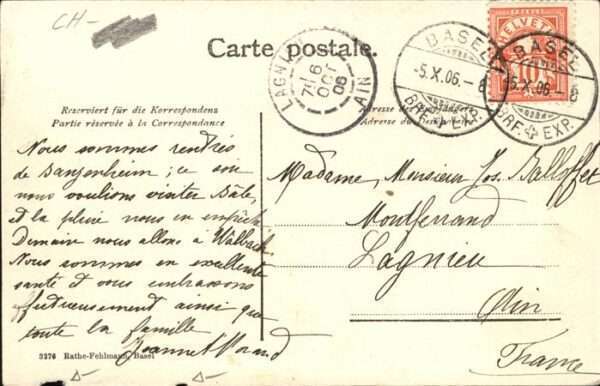 CH-
Carte postale.
HELVETIA
10
BASEL
-5.X.06.-8
BRF. EXP.
BASEL
-5.X.06.-8
BRF. EXP.
LAGNIEU
6
OCT
06
AIN
Reserviert für die Korrespondenz
Partie réservée à la Correspondance
Adresse des Empfängers
Adresse du Destinataire
Nous sommes rentrés
de Danzenheim ; ce soir
nous voulions visiter Bâle,
et la pluie nous en empêche
Demain nous allons à Walbach
Nous sommes en excellente
santé et vous embrassons
affectueusement ainsi que
toute la famille
Jeannet Morand
Madame, Monsieur Jos. Balloffet
Montferrand
Lagnieu
Ain
France
3276 Rathe-Fehlmann, Basel